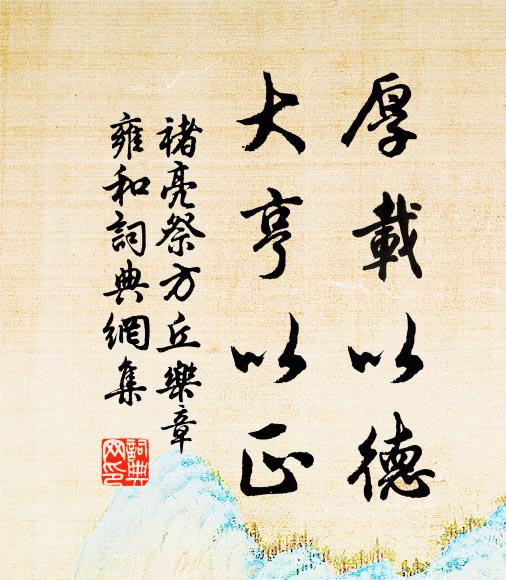 厚載以德
大亨以正
褚亮祭方丘樂章
雍和詞典網集
詞典
网印